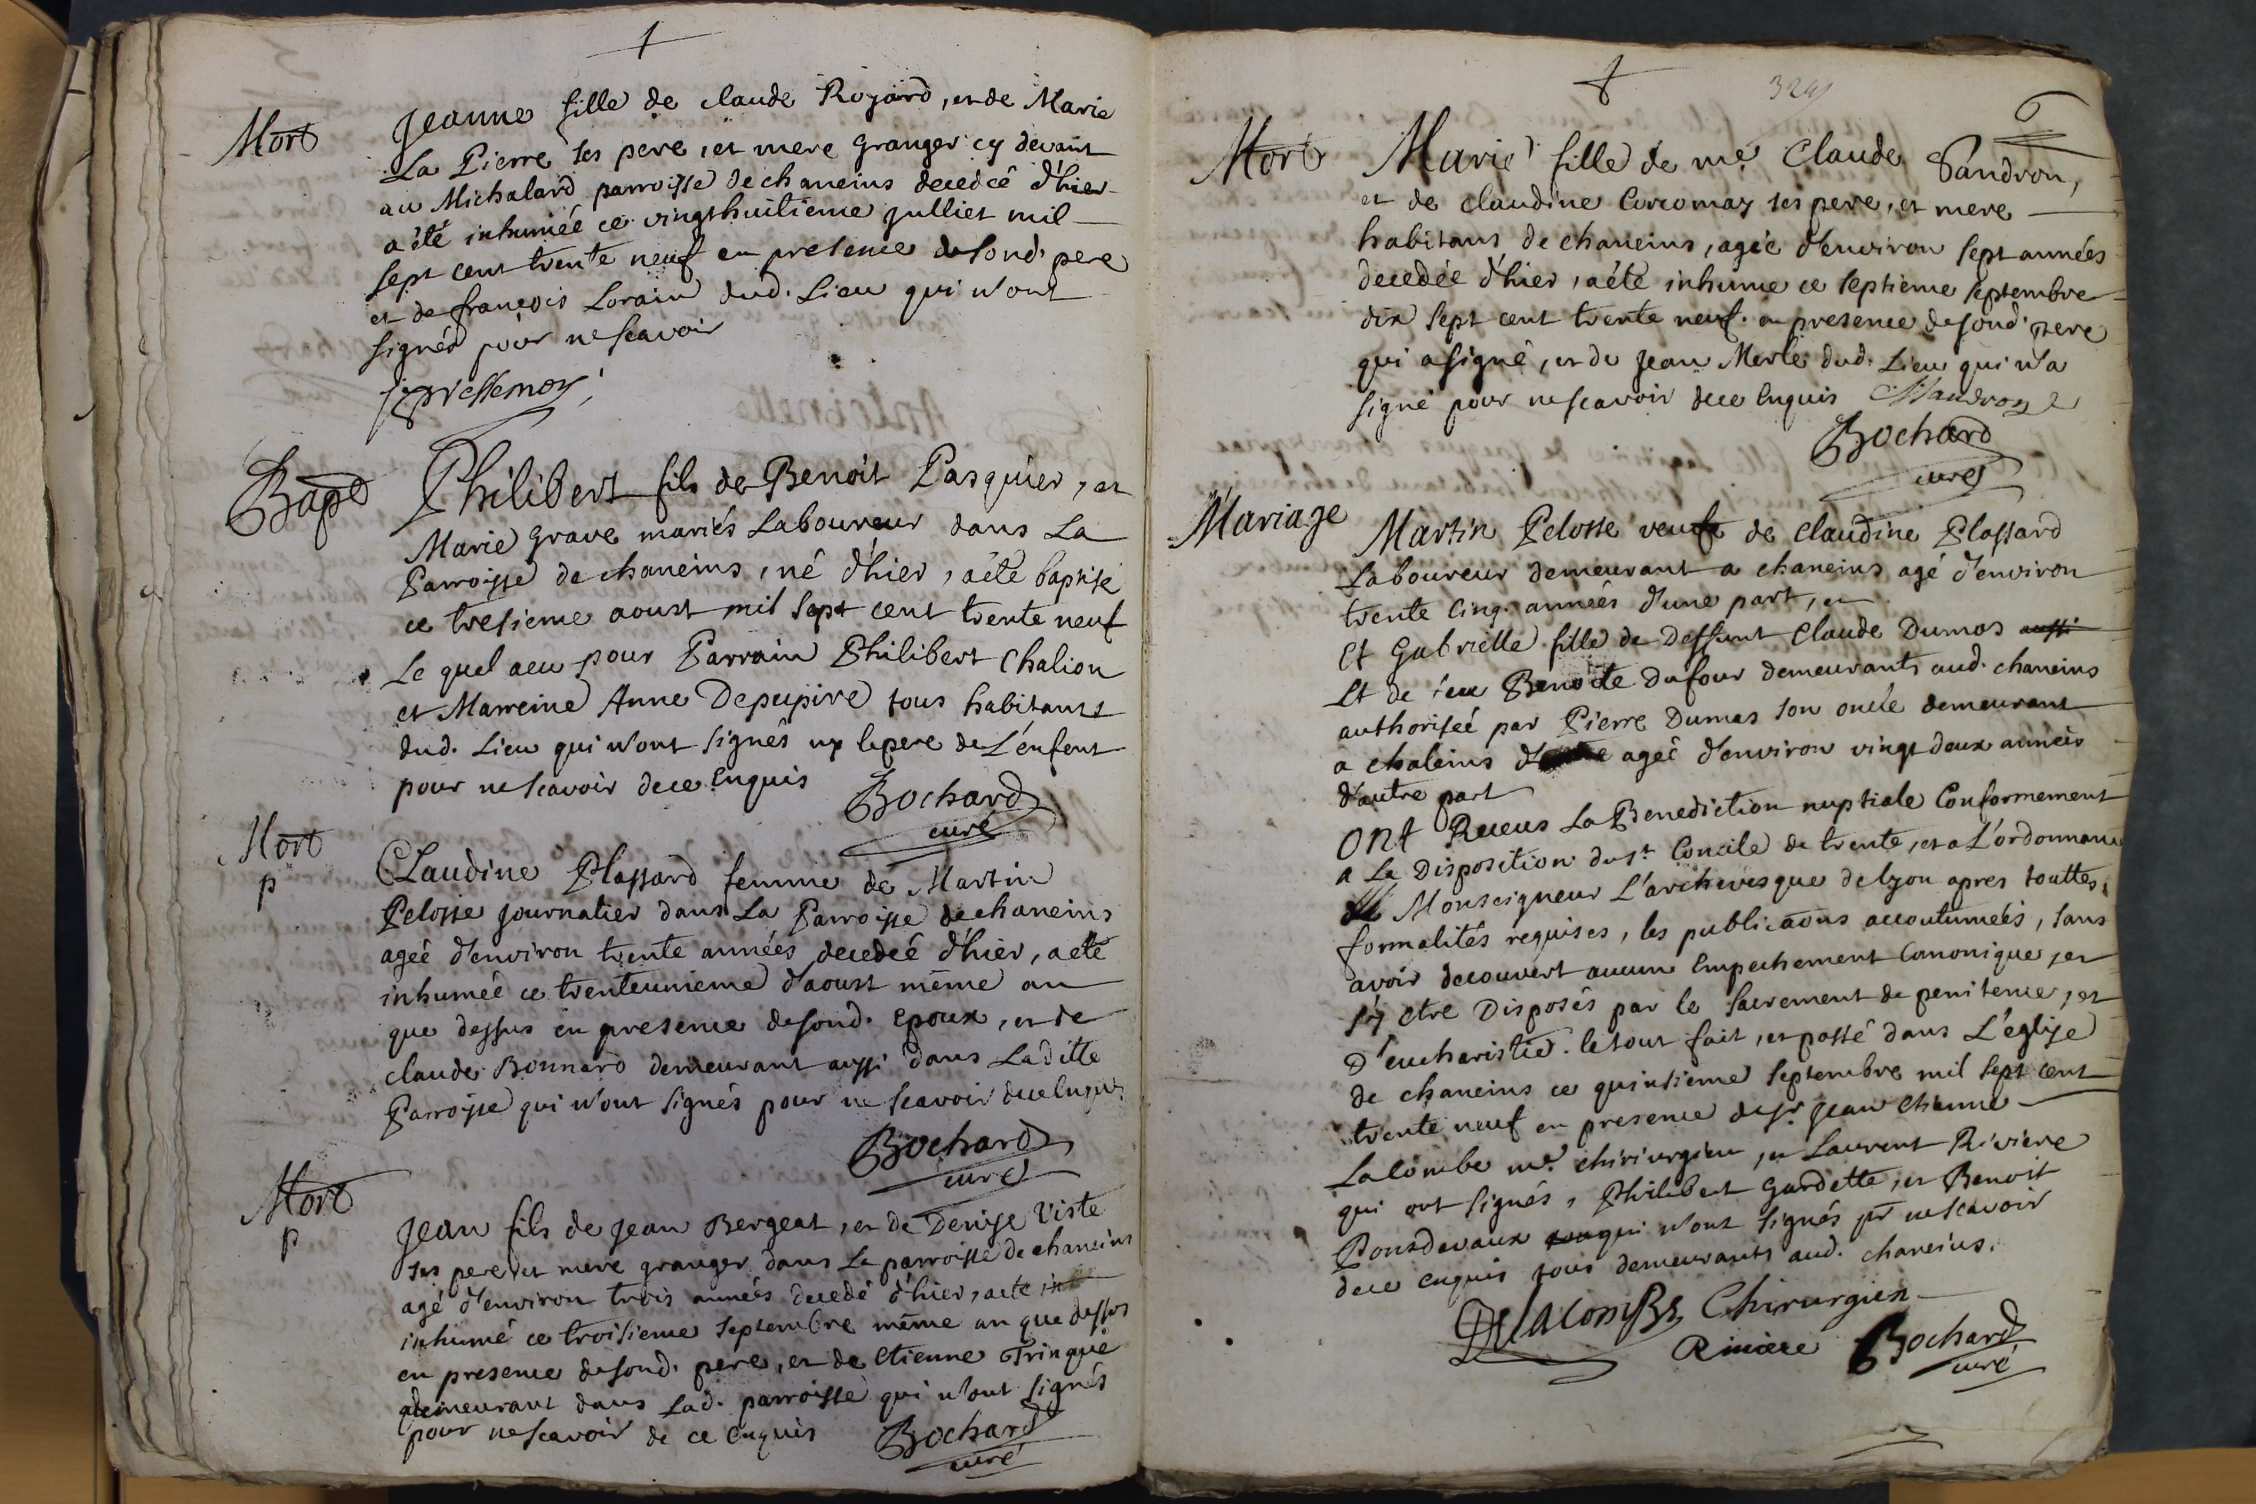 Mort
Jeanne fille de claude Rojard, et de Marie
La Pierre ses pere, et mere granger cy devant
au Michalard parroisse de chaneins decedeé d'hier
a été inhumeé ce vingt huitieme julliet mil
sept cent trente neuf en presence de sond. pere
et de françois Lorain dud. Lieu qui n'ont
signés pour ne scavoir
Bapt
Philibert fils de Benoit Pasquier, et
Marie grave mariés Laboureur dans La
Parroisse de chaneins, né d'hier, a été baptisé
ce tresieme aoust mil sept cent trente neuf
Le quel a eu pour Parrain Philibert Chalion
et Marreine Anne Depupire tous habitants
dud. Lieu qui n'ont signés ny le pere de L'enfent
pour ne scavoir de ce enquis Bochard
curé
Mort
p
Claudine Plassard femme de Martin
Pelosse journalier dans La Parroisse de chaneins
ageé d'environ trente années decedeé d'hier, a eté
inhumeé ce trenteunieme d'aoust même an
que dessus en presence de sond. epoux, et de
claude Bonnard demeurant aussi dans Laditte
Parroisse qui n'ont signés pour ne scavoir de ce enquis
Bochard
curé
Mort
p
Jean fils de Jean Bergeat, et de Denise Viste
ses pere, et mere granger dans La parroisse de chaneins
agé d'environ trois années decedé d'hier, a eté
inhumé ce troisieme septembre même an que dessus
en presence de sond. pere, et de Etienne Trinque
demeurant dans Lad. parroisse qui n'ont signés
pour ne scavoir de ce enquis Bochard
curé
324
6
Mort
Marie fille de me. Claude Pandron,
et de claudine Corcomay ses pere, et mere
habitans de chaneins, ageé d'environ sept années
decedeé d'hier, a été inhume ce septieme septembre
dix sept cent trente neuf. en presence de sond. pere
qui a signé, et de Jean Merle dud. Lieu qui n'a
signé pour ne scavoir de ce enquis
Bochard
curé
Mariage
Martin Pelosse veuf de claudine Plassard
Laboureur demeurant a chaneins agé d'environ
trente cinq. années d'une part, et
Et Gabrielle fille de Deffunt Claude Dumas aussi
Et de feu Benoite Dufour demeurants aud. chaneins
authoriseé par Pierre Dumas son oncle demeurant
a chaleins ageé d'environ vingt deux années
d'autre part
ont Receus La Benediction nuptiale Conformement
a La Disposition du st. Concile de trente, et a L'ordonnance
de Monseigneur L'archevesque de lyon apres touttes
formalités requises, les publicaons accoutumeés, sans
avoir decouvert aucun Empechement Canonique, et
s'y etre Disposés par le sacrement de penitence, et
D'eucharistie. le tout fait, et passé dans L'eglise
de chaneins ce quinsieme septembre mil sept cent
trente neuf en presence de sr. Jean Etienne
Lacombe me. chirurgien, et Laurent Riviere
qui ont signés, Philibert Gardette, et Benoit
Ponsdevaux qui n'ont signés pr ne scavoir
de ce enquis tous demeurants aud. chaneins.
Delacombe Chirurgien
Riviere Bochard
curé